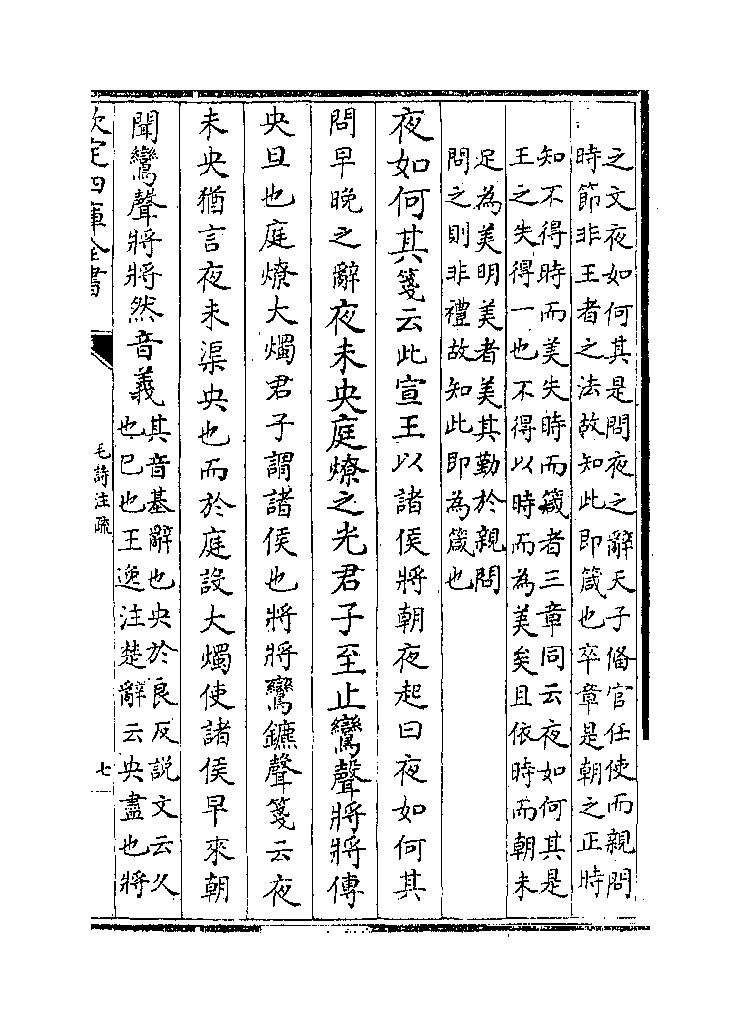 之文夜如何其是問夜之辭天子備官任使而親問
時節非王者之法故知此即箴也卒章是朝之正時
知不得時而美失時而箴者三章同云夜如何其是
王之失得一也不得以時而為美矣且依時而朝未
足為美明美者美其勤於親問
問之則非禮故知此即為箴也
夜如何其箋云此宣王以諸侯將朝夜起曰夜如何其
問早晚之辭夜未央庭燎之光君子至止鸞聲將將傳
央旦也庭燎大燭君子謂諸侯也將將鸞鑣聲箋云夜
未央猶言夜未渠央也而於庭設大燭使諸侯早來朝
聞鸞聲將將然音義其音基辭也央於良反說文云久
也已也王逸注楚辭云央盡也將
欽定四庫全書
毛詩注疏
七